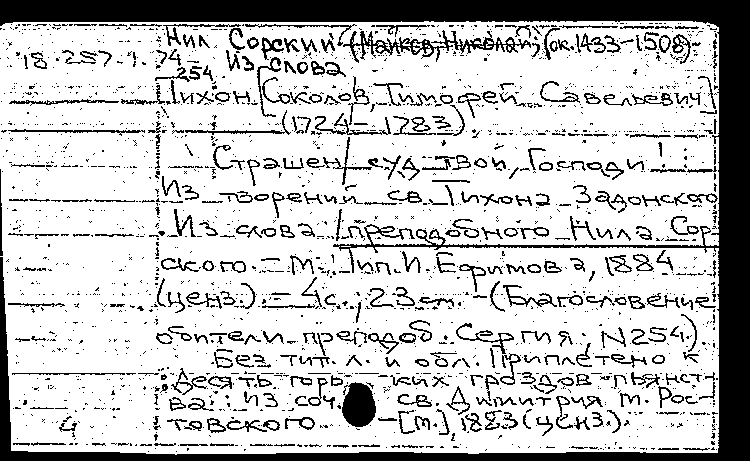 Нил Сорский (Майков, Николай; (ок. 1433-1508)-
18.257.1.74 Из слова
254
Тихон [Соколов, Тимофей Савельевич]
(1724-1783).
Страшен суд твой, Господи!:
Из творений св. Тихона Задонского
.Из слова преподобного Нила Сор-
ского. - М.: Тип. И. Ефимова, 1884
(ценз.). - 4с.; 23 см. - (Благословение
обители преподоб. Сергия; N254).
Без тит. л. и обл. Приплетено к
: Десять горьких гроздов пьянст-
ва: из соч. св. Димитрия м. Рос-
товского - [М.], 1883 (ценз.).
4